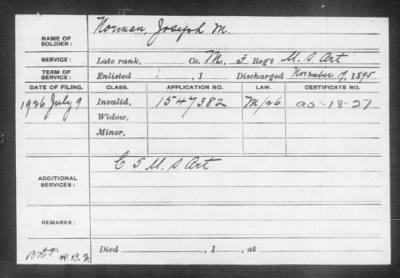 NAME OF SOLDIER: Norman, Joseph M.
SERVICE: Late rank, Co. M, 3 Reg't U. S. Art
TERM OF SERVICE: Enlisted , 1 Discharged November 17, 1895
DATE OF FILING. CLASS. APPLICATION NO. LAW. CERTIFICATE NO.
1926 July 9 Invalid, 1547382
Widow,
Minor,
ADDITIONAL SERVICES: C 5 U. S Art
REMARKS:
Died , 1 , at